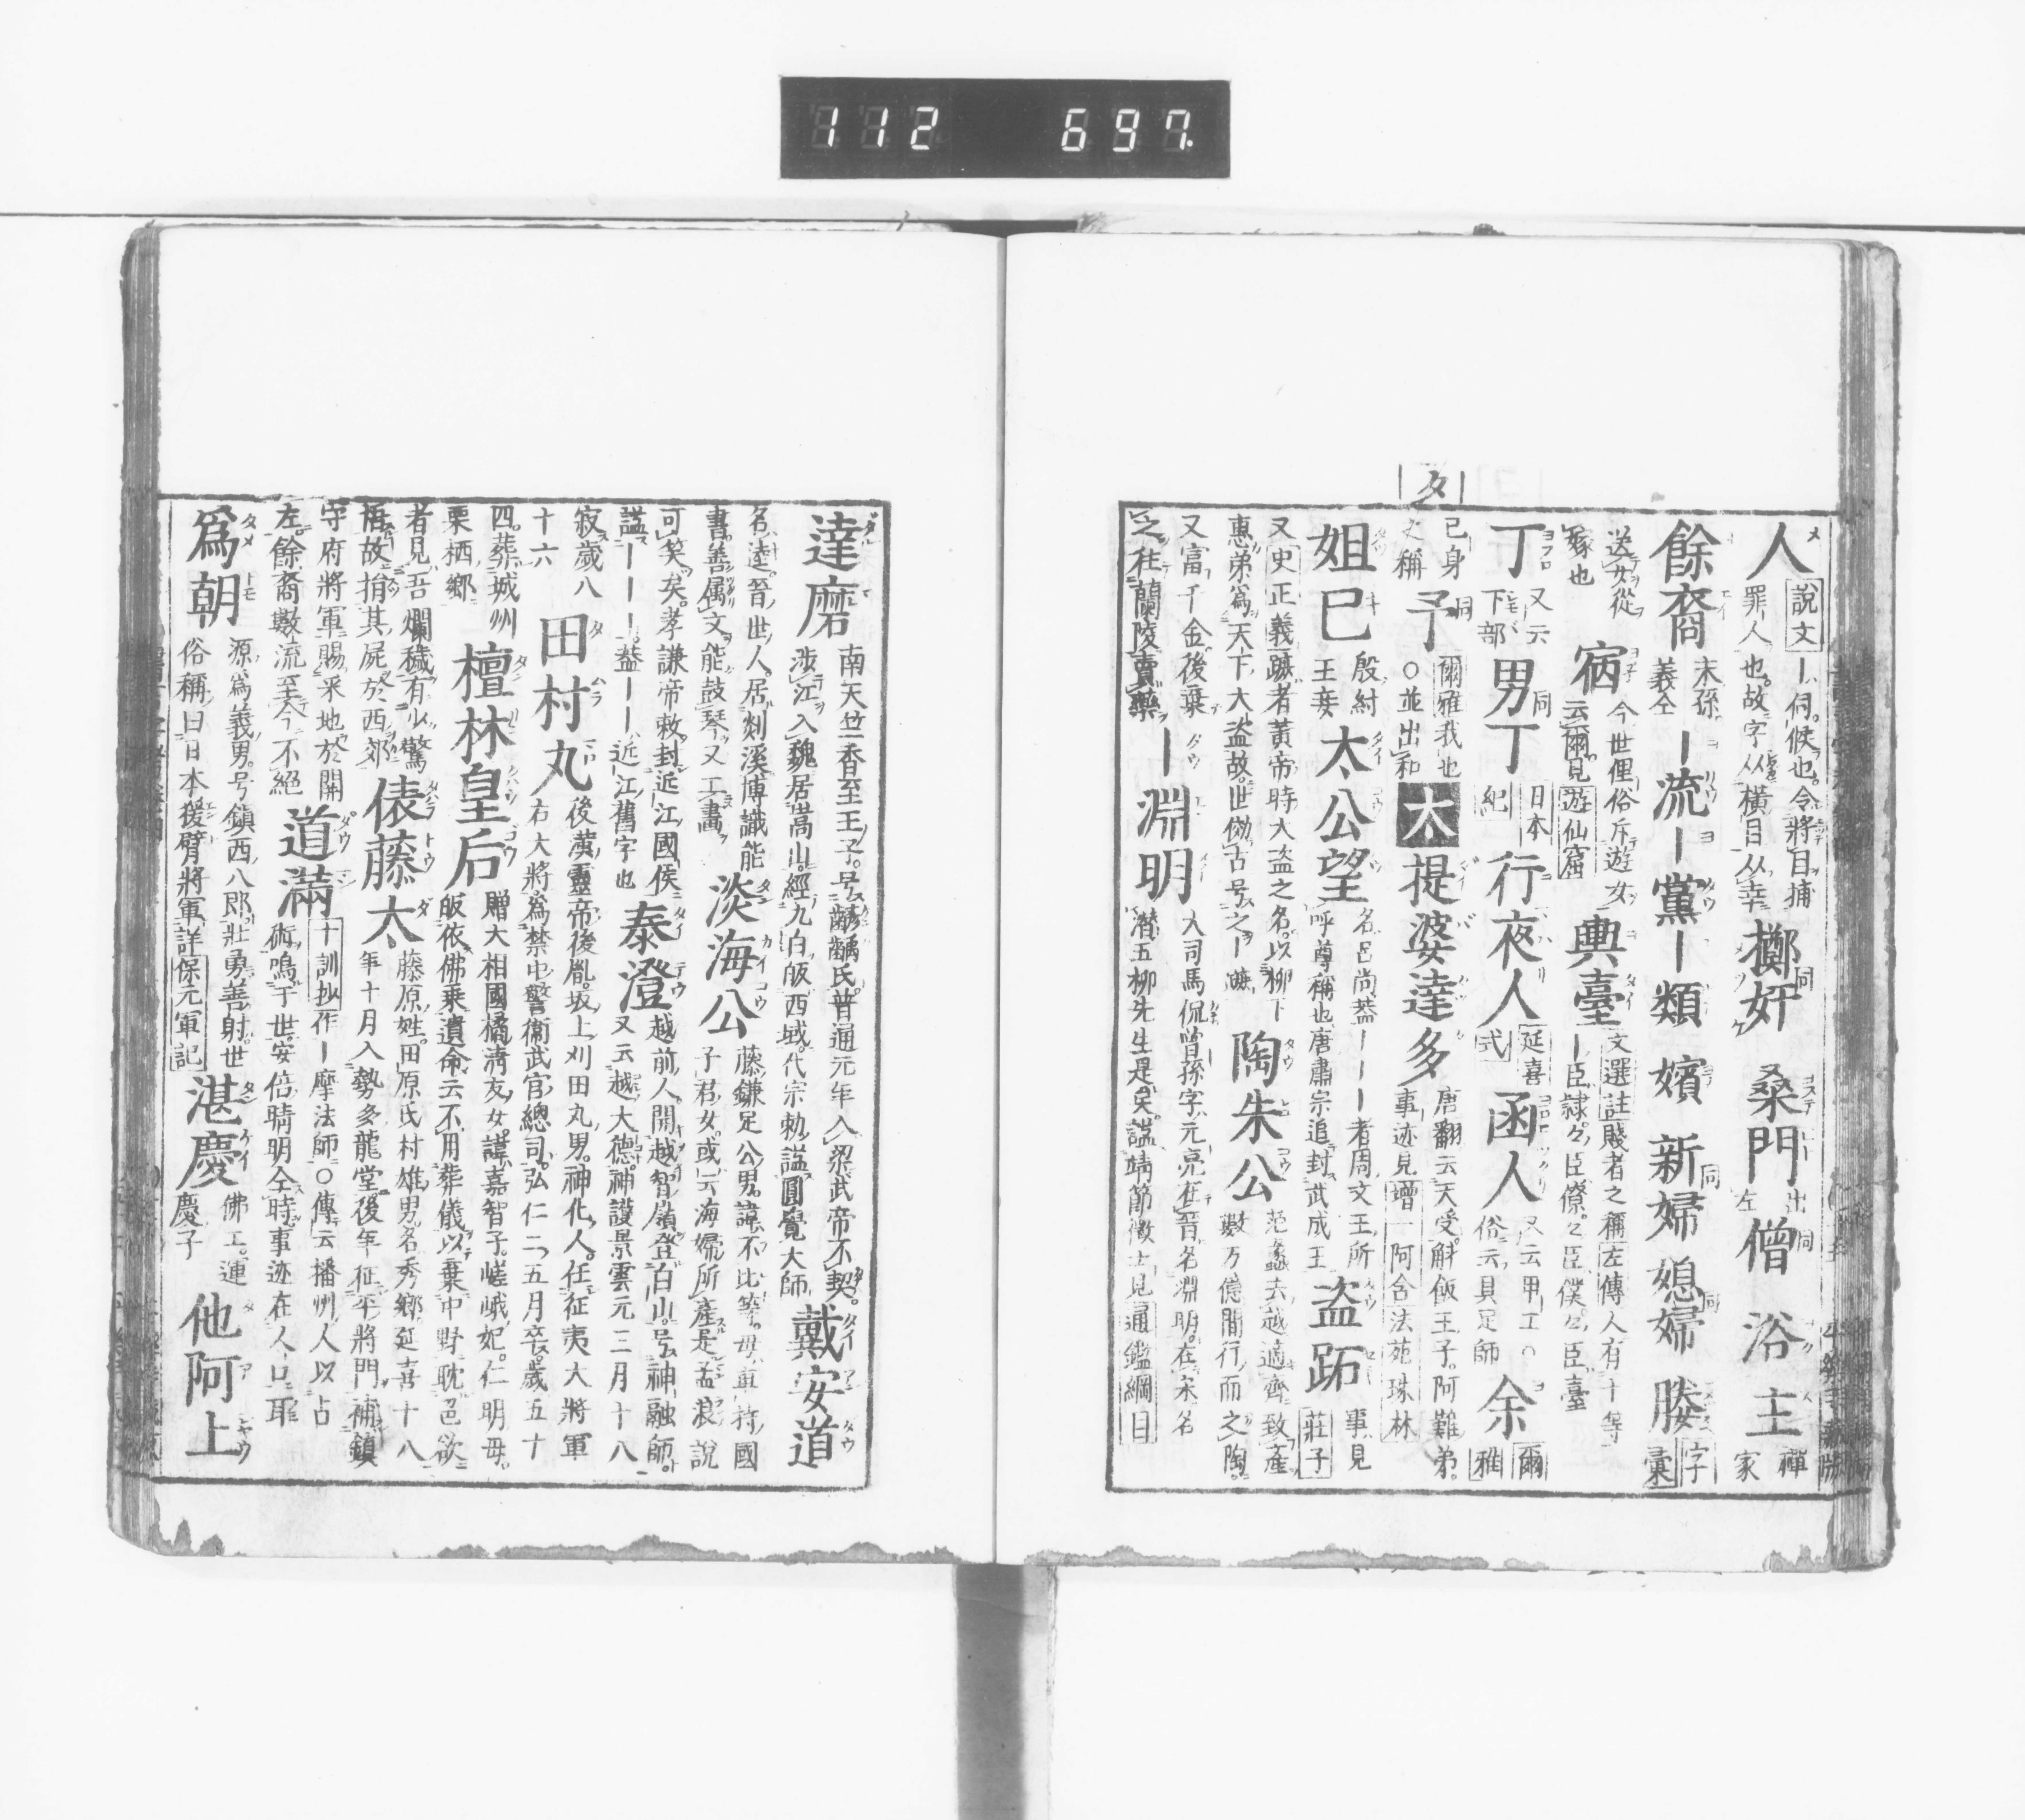 112 697
タ
人 説文ー伺候也令將目捕罪人也故字从橫目从幸 擲奸 同 桑門 出左 僧 同 浴主 禪家
餘裔 末孫義仝 ー流 ー黨 ー類 嬪 新婦 同 媳婦 同 媵 字彙
送女從嫁也 㝱 今世俚俗斥遊女云爾見遊仙窟 輿臺 文選註賤者之稱左傳人有十等ー臣隷々臣僚々臣僕々臣臺
丁 又云下部 男丁 同 日本紀 行夜人 延喜式 函人 又云甲工○俗云具足師 余 爾雅
已身之稱 予 同 爾雅我也○並出和 太 提婆達多 唐翻云天受斛飯王子阿難弟事迹見增一阿含法苑珠林
妲已 殷紂王妾 太公望 名呂尚蓋ーーー者周文王所呼尊稱也唐肅宗追封武成王 盗跖 事見莊子
又史正義蹠者黃帝時大盗之名以柳下惠弟爲天下大盗故世倣古号之ー蹠 陶朱公 范蠡去越適齊致產數万億間行而之陶
又富千金後棄之往蘭陵賣藥 ー淵明 大司馬侃曾孫字元亮在晉名淵明在宋名潜五柳先生是矣諡靖節徵士見通鑑綱目
達磨 南天竺香至王子号齠齲氏普通元年入梁武帝不契渉江入魏居嵩山經九白皈西域代宗勅諡圓覺大師 戴安道
名逵晉世人居剡溪博識能書善属文能鼓琴又工畵 淡海公 藤鎌足公男諱不比等母車持國子君女或云海婦所產是孟浪說
可笑矣孝謙帝敕封近江國侯諡ーーー蓋ーー近江舊字也 泰澄 越前人開越智嶺登白山号神融師又云越大德神護景雲元三月十八
寂歲八十六 田村丸 後漢靈帝後胤坂上刈田丸男神化人任征夷大將軍右大將爲禁中警衞武官總司弘仁二五月卒歲五十
四葬城州栗栖鄉 檀林皇后 贈大相國橘淸友女諱嘉智子嵯峨妃仁明母皈依佛乗遺命云不用葬儀以棄中野耽色欲
者見吾爛穢有少驚悟故捐其屍於西郊 俵藤太 藤原姓田原氏村雄男名秀鄉延喜十八年十月入勢多龍堂後年征平將門補鎭
守府將軍賜采地於開左餘裔數流至今不絕 道滿 十訓抄作ー摩法師○傳云播州人以占術鳴于世安倍晴明仝時事迹在人口耳
爲朝 源爲義男号鎭西八郎壯勇善射世俗稱曰日本援臂將軍詳保元軍記 湛慶 佛工運慶子 他阿上